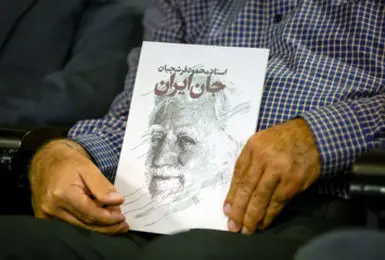 استاد محمود فرشچیان
جان ایران